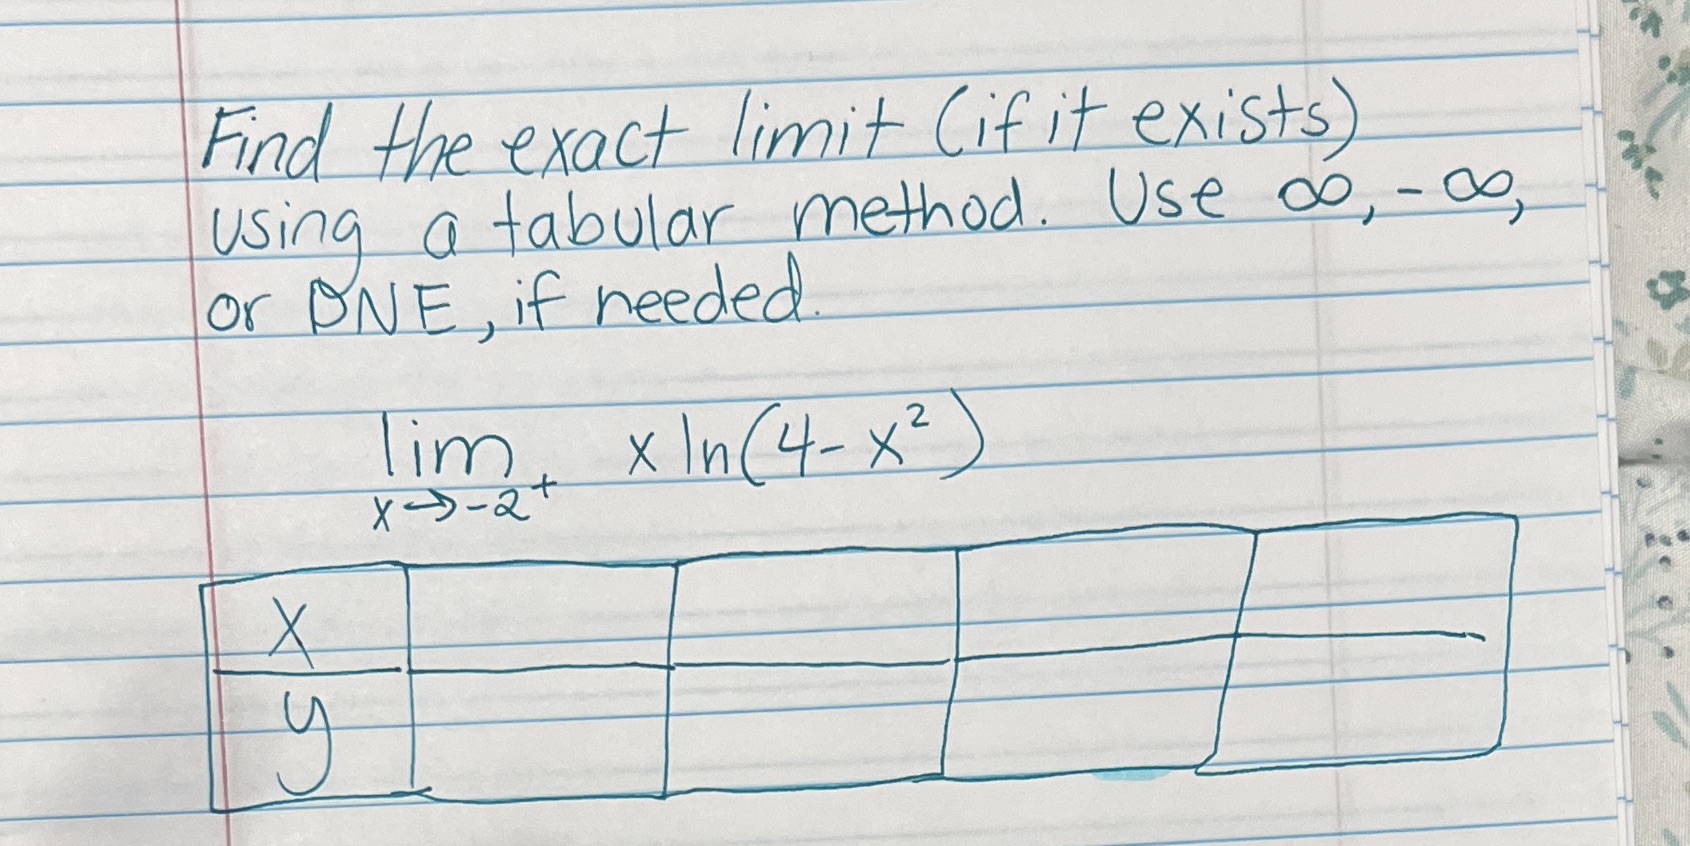 Find the exact limit (if it exists)
using a tabular method. Use ∞, -∞,
or DNE, if needed.
lim x ln(4-x²)
x→-2⁺
x
y